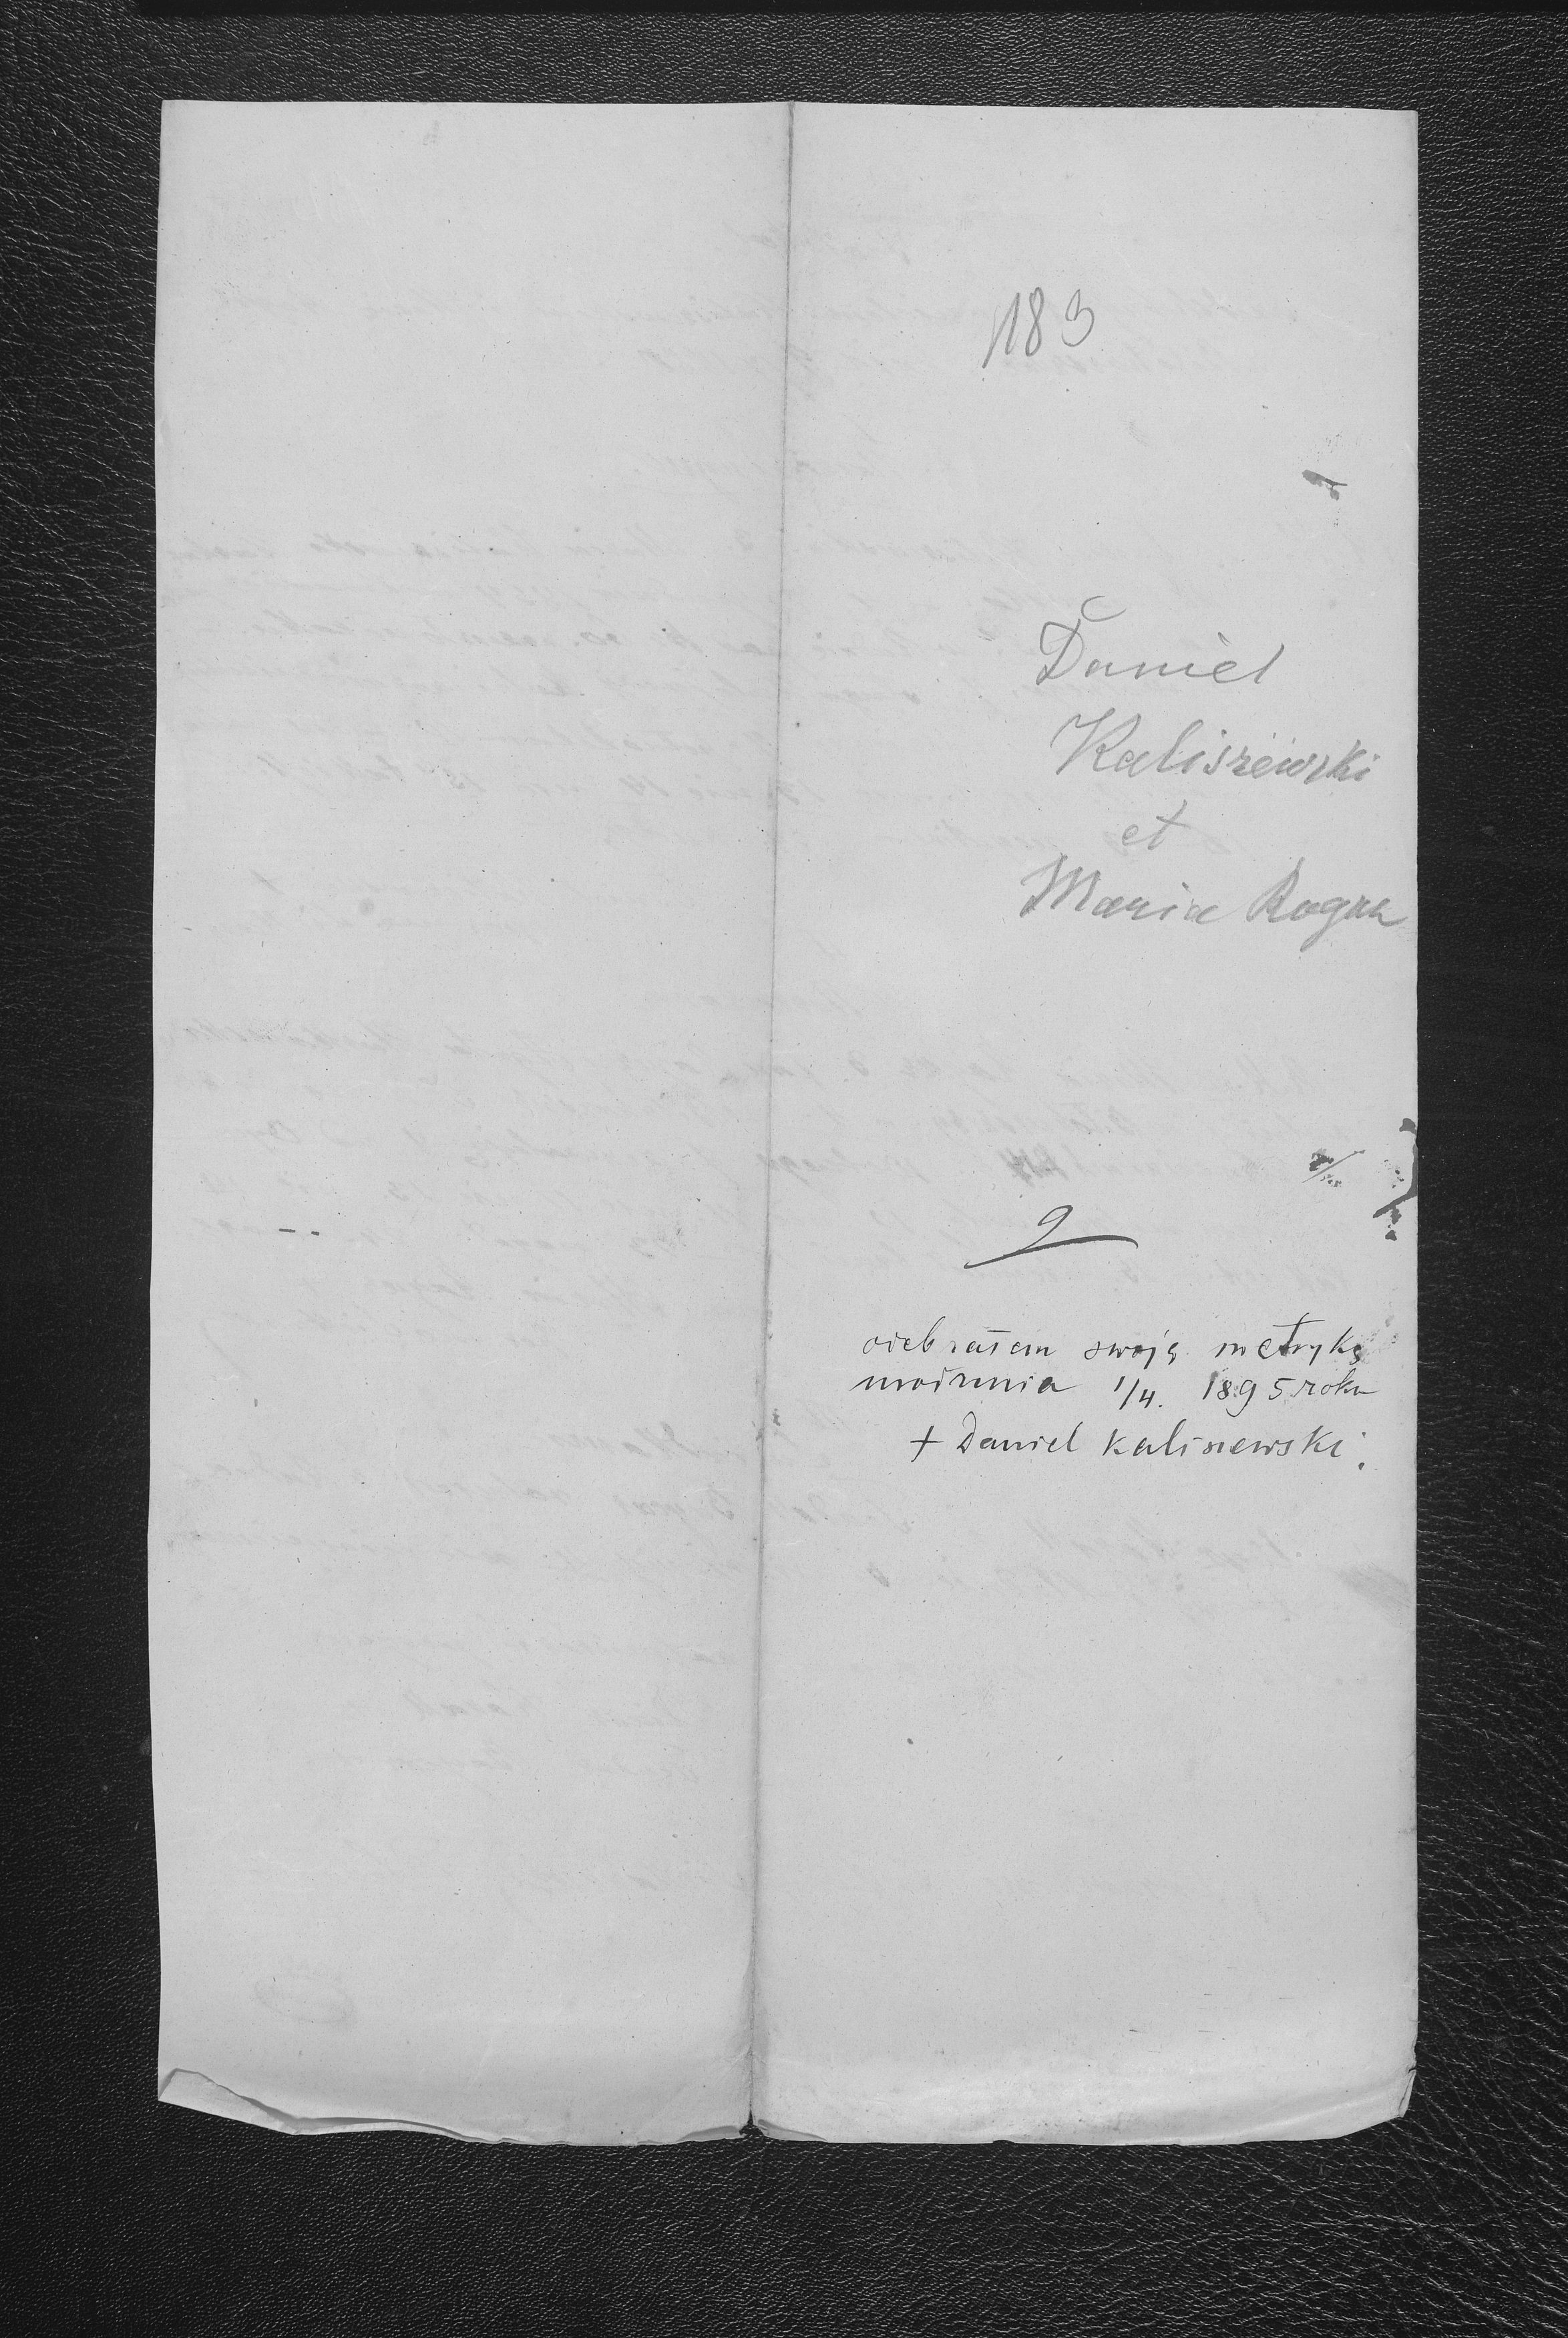 183
Daniel
Kaliszewski
et
Maria Rogas
9
odebrałem swoję metrykę
1/4. 1895 roku
+ Daniel Kaliszewski.